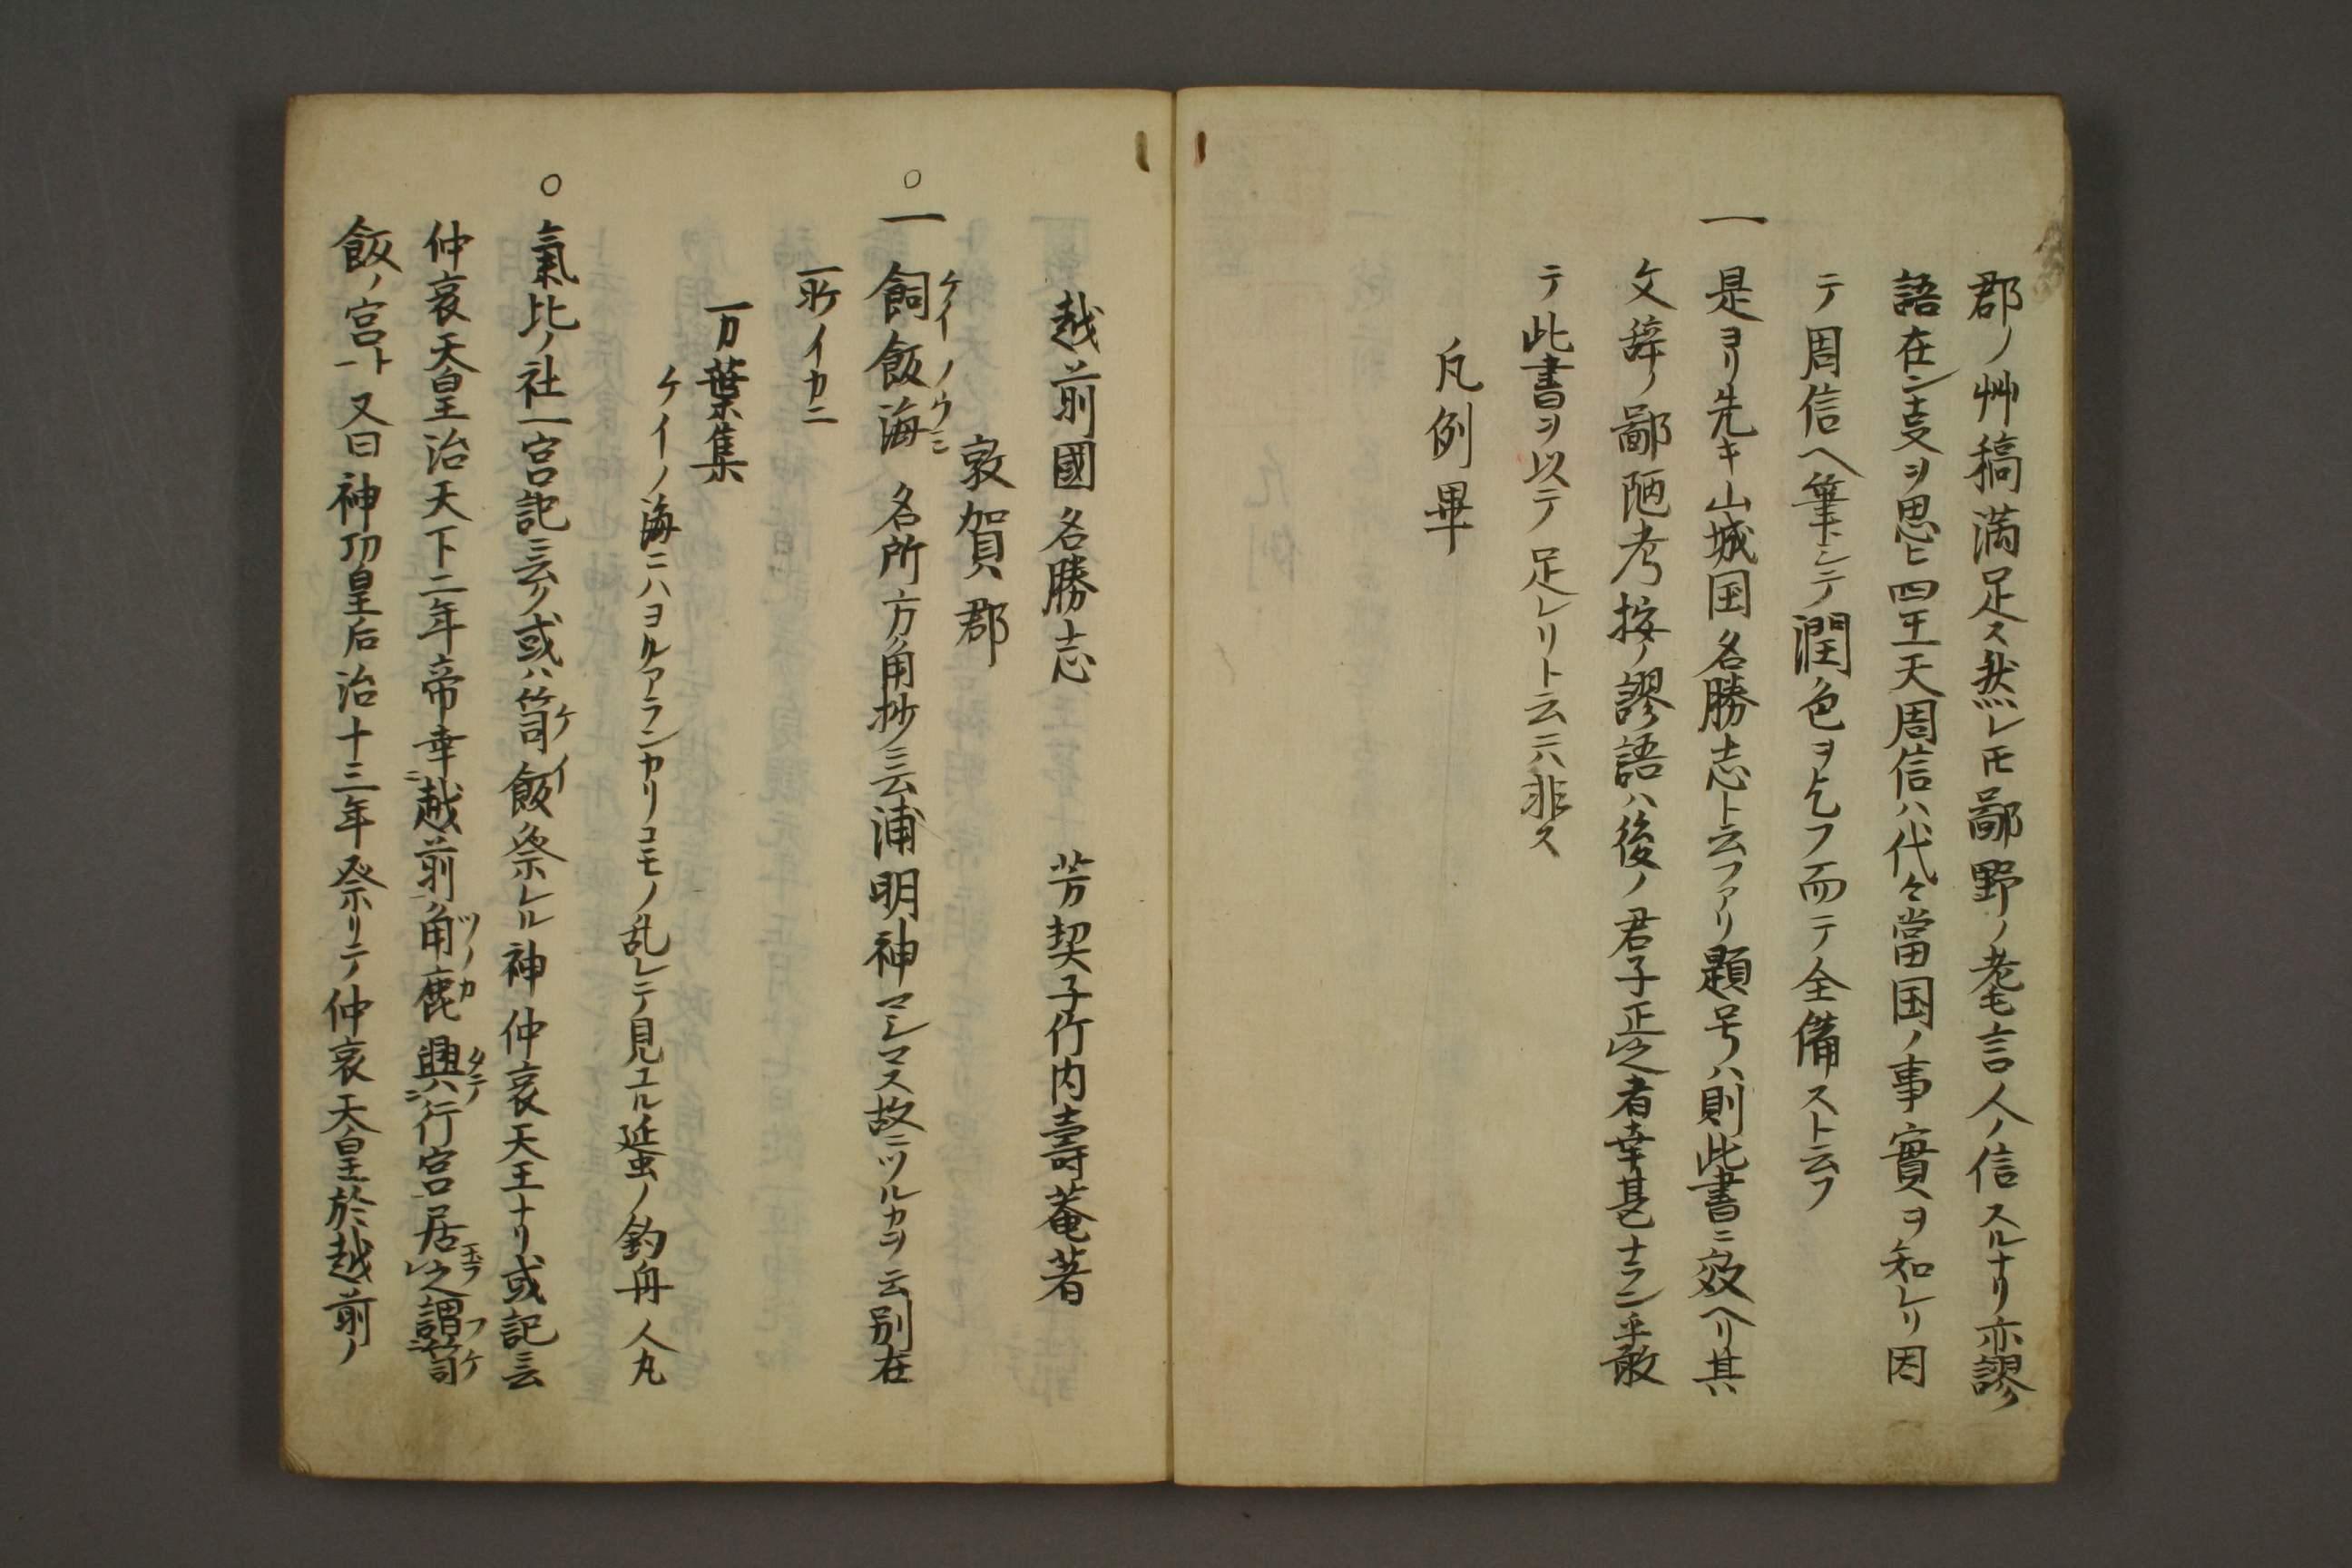 郡ノ艸稿満足ス然レ𪜈鄙野ノ耄言人ノ信スルナリ亦謬
語在ン叓ヲ思ヒ四王天周信ハ代々當国ノ事實ヲ知レリ因
テ周信ヘ筆トシテ潤色ヲ乞フ而テ全備スト云フ
一 是ヨリ先キ山城国名勝志ト云フアリ題号ハ則此書ニ效ヘリ其
文辞ノ鄙陋考按ノ謬語ハ後ノ君子正之者幸甚ナラン乎敢
テ此書ヲ以テ足レリト云ニハ非ス
凡例畢
越前國名勝志 芳契子竹内壽菴著
敦賀郡
○一 飼飯海 名所方角抄ニ云浦明神マシマス故ニツルカヲ云別在
ケイノウミ
所イカニ
万葉集
ケイノ海ニハヨルアランカリコモノ乱レテ見エル蜑ノ釣舟 人丸
○ 氣比ノ社一宮記ニ云ク或ハ笥飯祭レル神仲哀天王ナリ或記ニ云
ケイ
仲哀天皇治天下二年帝幸ニ越前ノ角鹿ニ興行宮居之謂笥
ツノカ タテヽ 玉フ フケ
飯ノ宮ト又曰神功皇后治十三年祭リテ仲哀天皇於越前ノ